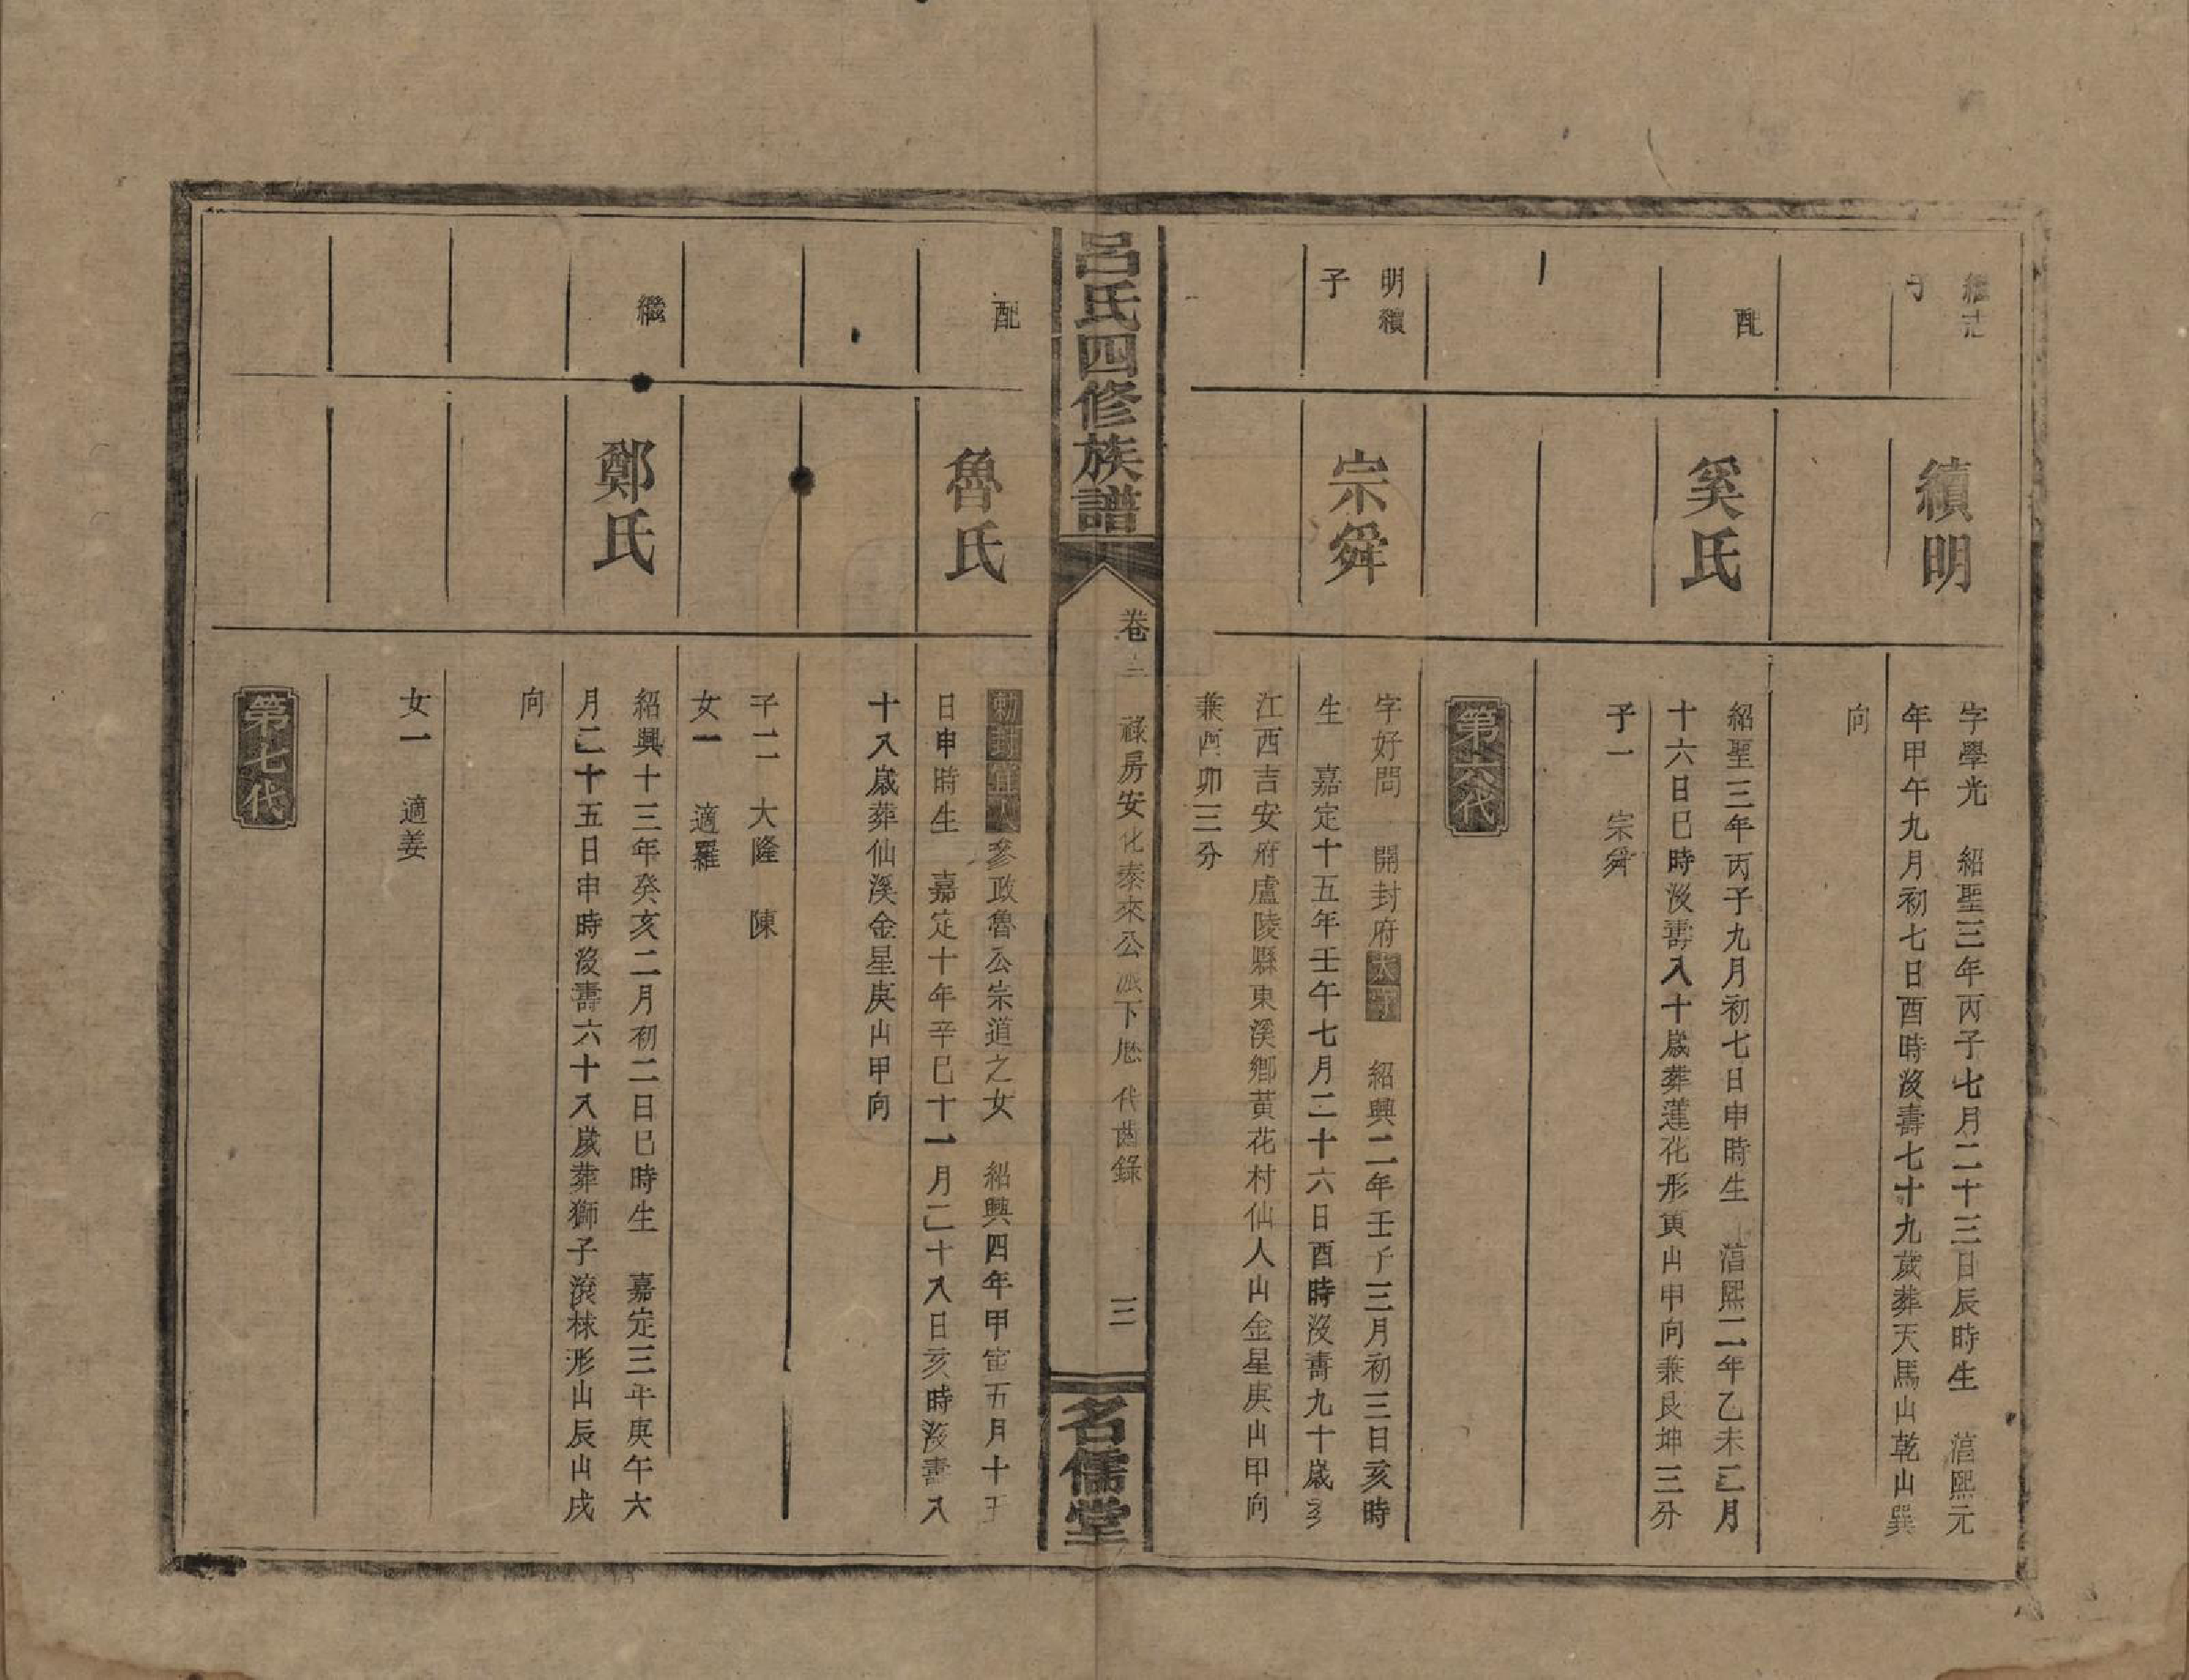 子
續明
字學光 紹聖三年丙子七月二十三日辰時生 淯熙元
年甲午九月初七日酉時沒壽七十九歲葬天馬山乾山巽
向
配
奚氏
紹聖三年丙子九月初七日申時生 淯熙二年乙未二月
十六日巳時沒壽八十歲葬蓮花形寅山申向兼艮坤三分
子一 宗舜
第六代
明續
子
宗舜
字好問 開封府太守 紹興二年壬子三月初三日亥時
生 嘉定十五年壬午七月二十六日酉時沒壽九十歲
江西吉安府廬陵縣東溪鄉黃花村仙人山金星庚山甲向
兼酉卯三分
呂氏四修族譜
卷 祿房安化泰來公派下歷代齒錄
三
名儒堂
配
魯氏
勅封宜人參政魯公宗道之女 紹興四年甲寅五月十五
日申時生 嘉定十年辛巳十一月二十八日亥時沒壽八
十八歲葬仙溪金星庚山甲向
子二 大隆 陳
女一 適羅
繼
鄭氏
紹興十三年癸亥二月初二日巳時生 嘉定三年庚午六
月二十五日申時沒壽六十八歲葬獅子滾㭐形山辰山戌
向
女一 適姜
第七代